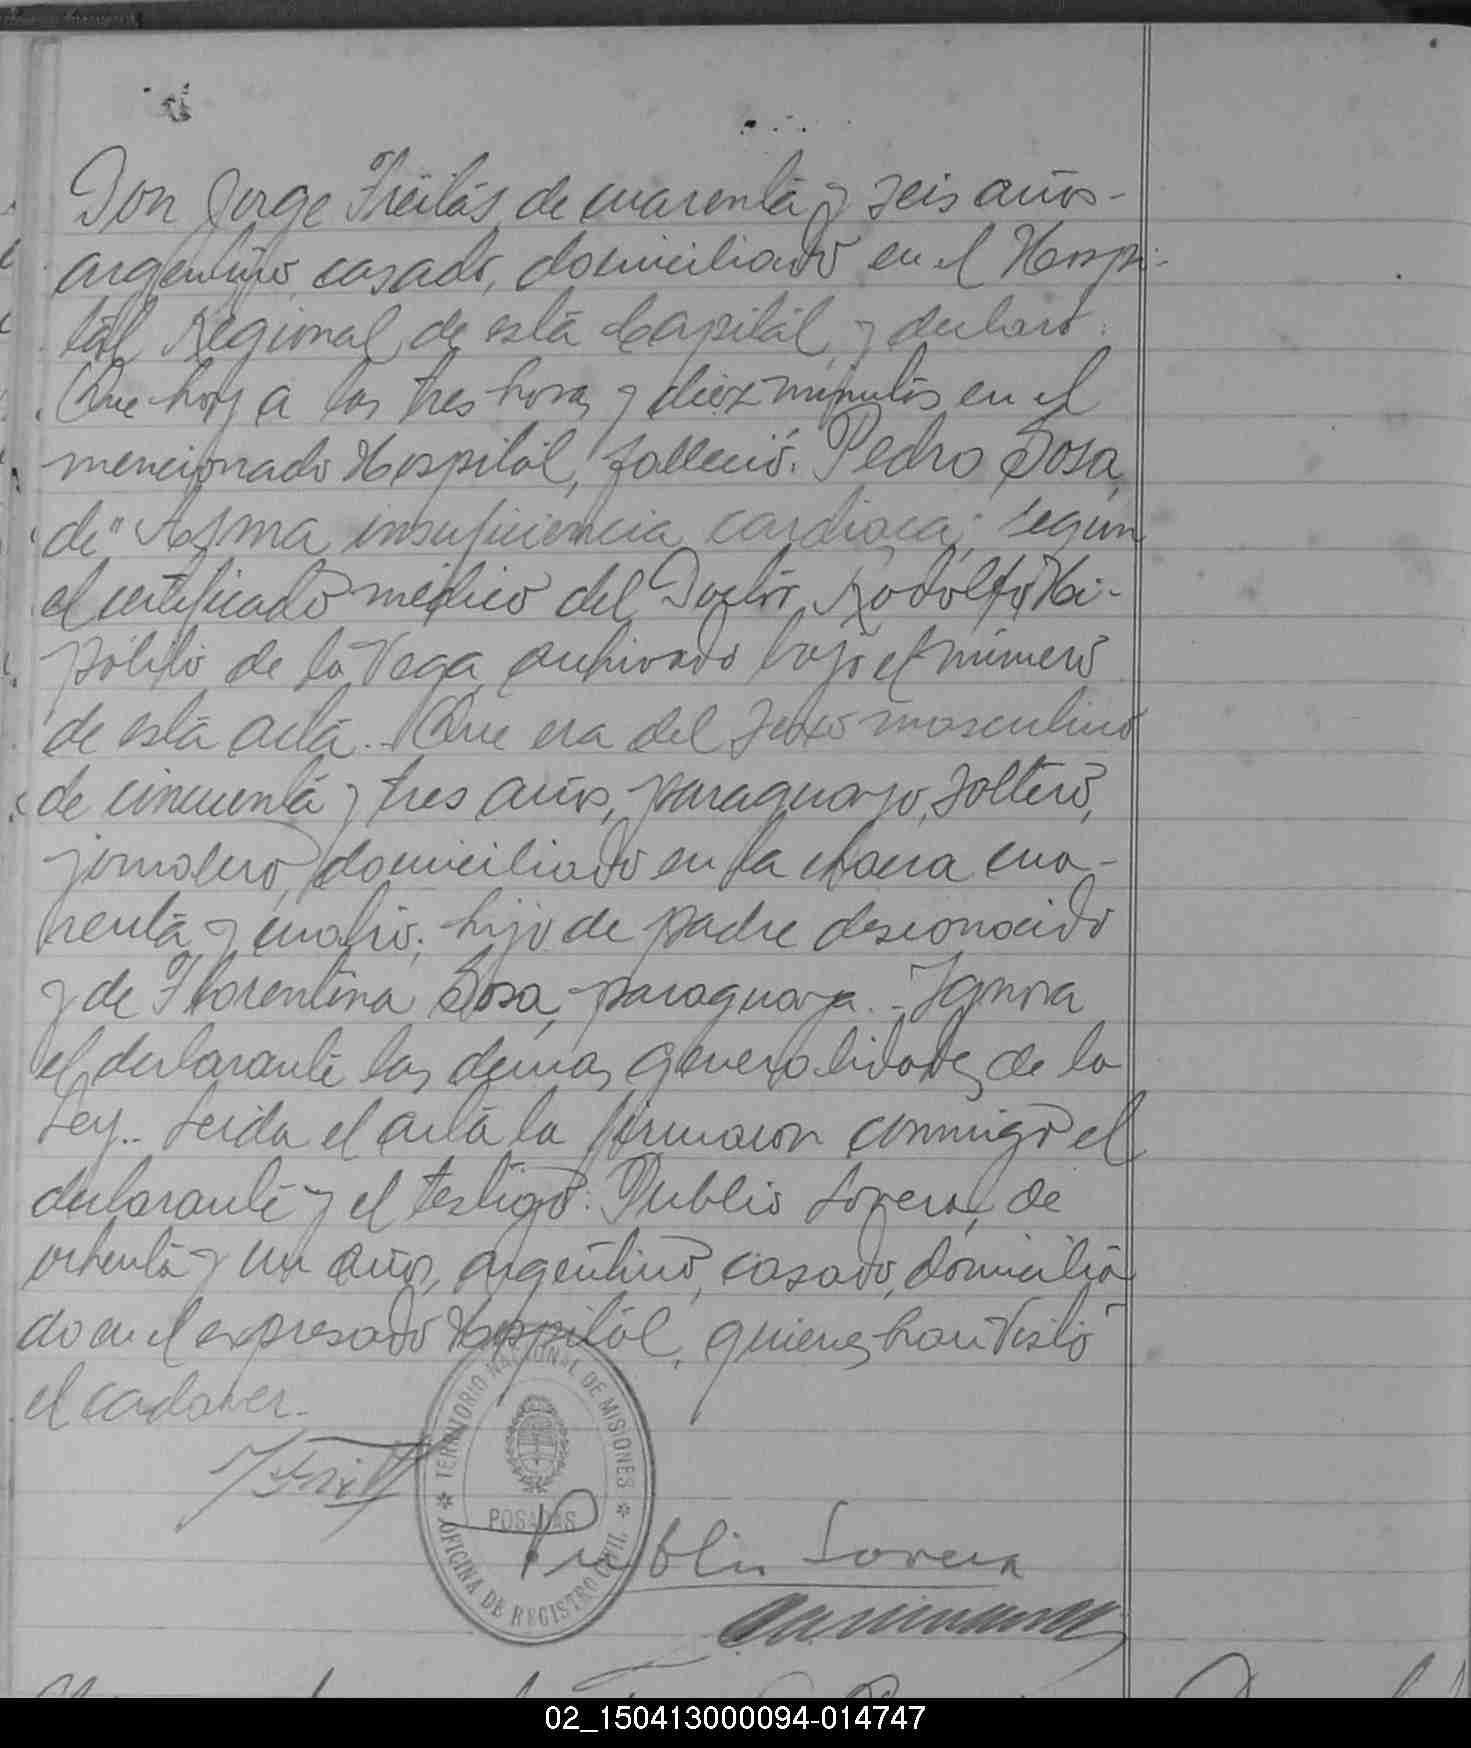 Don Jorge Freitas, de cuarenta y seis años-
argentino, casado, domiciliado en el Hospi-
tal Regional de esta Capital, y declaró:
Que hoy a las tres horas y diez minutos en el
mencionado Hospital, falleció: Pedro Sosa,
de "Asma insuficiencia cardiaca; según
el certificado médico del Doctor Rodolfo Hi-
pólito de la Vega archivado bajo el número
de esta acta.- Que era del sexo masculino
de cincuenta y tres años, paraguayo, soltero,
jornalero, domiciliado en la chacra cua-
renta y cuatro; hijo de padre desconocido
y de Florentina Sosa, paraguaya.- Ignora
el declarante las demas generalidades de la
Ley.- Leida el acta la firmaron conmigo el
declarante y el testigo: Publio Lovera, de
ochenta y un años, argentino, casado, domicilia
do en el expresado Hospital, quienes han visto
el cadaver.-
TERRITORIO NACIONAL DE MISIONES
POSADAS
OFICINA DE REGISTRO CIVIL
Publio Lovera
02_150413000094-014747